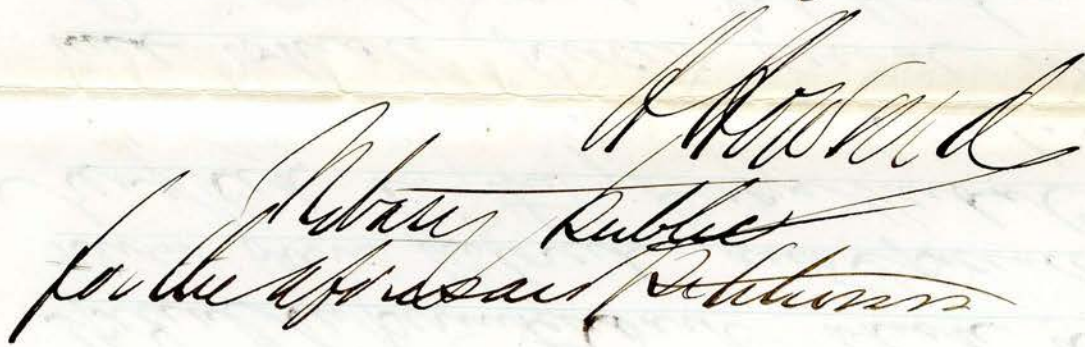 H Howard
Notary Public
for the aforesaid Petitioners